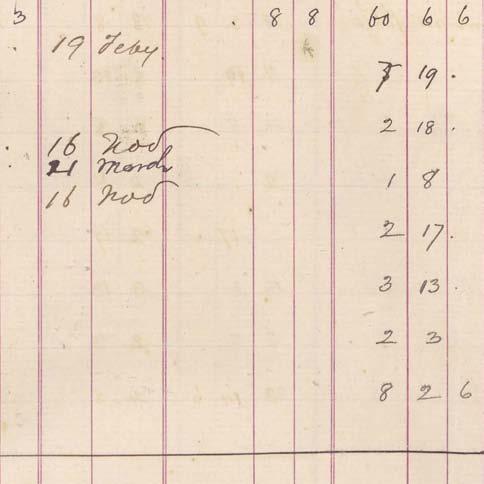 3 . 8 8 60 6 6
. 19 Feby
19 .
2 18 .
. 16 Nov
. 21 March
1 8
16 Nov
2 17 .
3 13 .
2 3
8 2 6